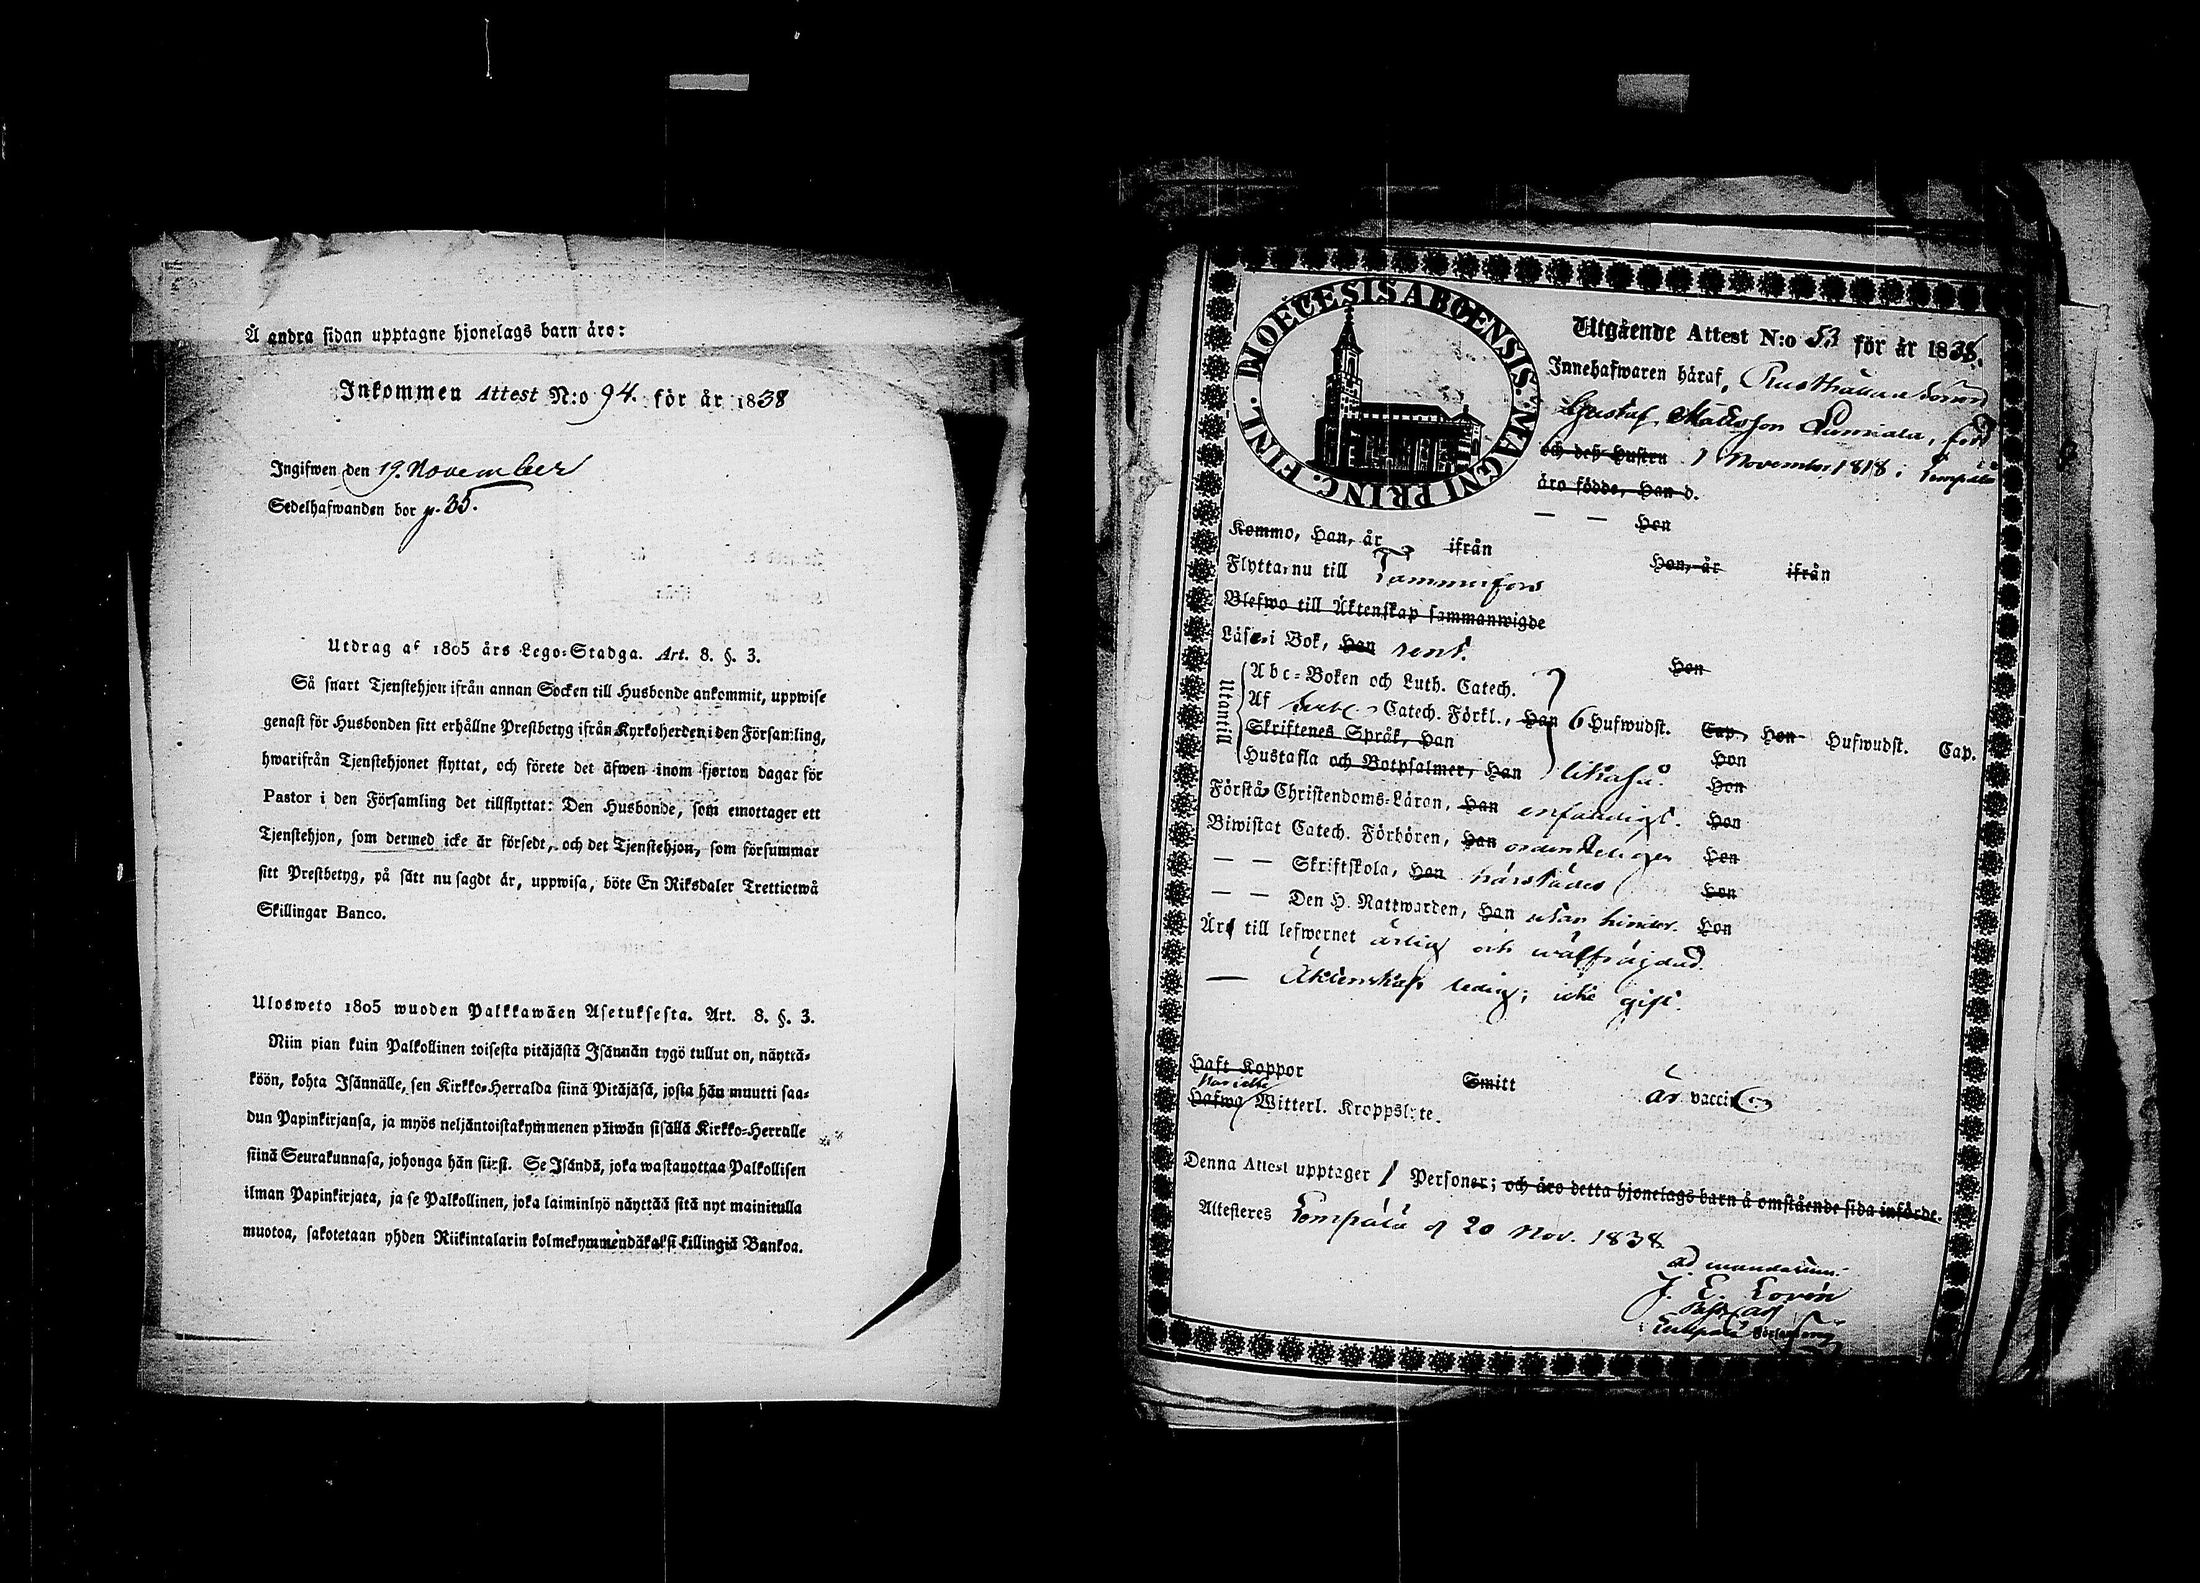 Å andra sidan upptagne hjonelags barn äro:
Inkommen Attest N:o 94. för år 1838
Ingifwen den 19. November
Sedelhafwanden bor p. 35.
Utdrag af 1805 års Lego-Stadga. Art. 8. §. 3.
Så snart Tjenstehjon ifrån annan Socken till Husbonde ankommit, uppwise
genast för Husbonden sitt erhållne Prestbetyg ifrån Kyrkoherden i den Församling,
hwarifrån Tjenstehjonet flyttat, och förete det äfwen inom fjorton dagar för
Pastor i den Församling det tillflyttat: Den Husbonde, som emottager ett
Tjenstehjon, som dermed icke är försedt, och det Tjenstehjon, som försummar
sitt Prestbetyg, på sätt nu sagdt är, uppwisa, böte En Riksdaler Trettiotwå
Skillingar Banco.
Ulosweto 1805 wuoden Palkkawäen Asetuksesta. Art. 8. §. 3.
Niin pian kuin Palkollinen toisesta pitäjästä Isännän tygö tullut on, näyttä-
köön, kohta Isännälle, sen Kirkko-Herralda siinä Pitäjäsä, josta hän muutti saa-
dun Papinkirjansa, ja myös neljäntoistakymmenen päiwän sisällä Kirkko-Herralle
siinä Seurakunnasa, johonga hän siirst. Se Isändä, joka wastanottaa Palkollisen
ilman Papinkirjata, ja se Palkollinen, joka laiminlyö näyttää sitä nyt mainitulla
muotoa, sakotetaan yhden Riikintalarin kolmekymmendäkaksi killingiä Bankoa.
DIOECESIS ABOENSIS. MAGNI PRINC. FINL.
Utgående Attest N:o 53 för år 1838.
Innehafwaren häraf, Rusthållaresonen
Gustaf Mattsson, född
och dess hustru 1 November 1818 i Lempälä
äro födde, Han d.
— — Hon
Kommo, Han, år ifrån Hon, år ifrån
Flytta, nu till Tammerfors
Blefwo till Äktenskap sammanwigde
Läser i Bok, Han rent. Hon
Utantill
Abc-Boken och Luth. Catech.
Af Catech. Förkl., Han 6 Hufwudst. Cap., Hon Hufwudst. Cap.
Skriftenes Språk, Han Hon
Hustafla och Botpsalmer, Han likaså. Hon
Förstå Christendoms-Läran, Han enfaldigt. Hon
Biwistat Catech. Förhören, Han ordenteligen Hon
— — Skriftskola, Han härstädes Hon
— — Den H. Nattwarden, Han utan hinder. Hon
Är till lefwernet ärlig och wälfrägdad.
— Äktenskap ledig; icke gift.
Haft Koppor Smitt är vaccin
Har icke
Hafwa Witterl. Kroppslyte.
Denna Attest upptager 1 Personer; och äro detta hjonelags barn å omstående sida införde.
Attesteres Lempälä d 20 Nov. 1838
ad mandatum:
J. E. Lovén